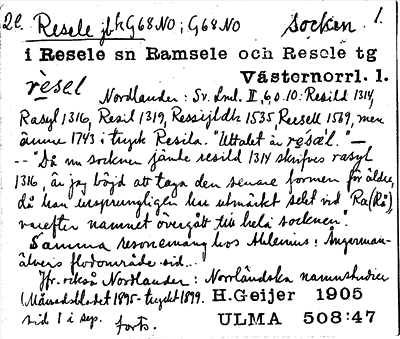 20. Resele jbk G68NO; G68NO socken 1.
i Resele sn Ramsele och Resele tg
Västernorrl. l.
resel
Nordlander: Sv. Lml. II, 6, s. 10: Resild 1314,
Rasyl 1316, Resil 1319, Ressijldh 1535, Resell 1589, men
ännu 1743 i tryck Resila. "Uttalet är resäl." —
-- "Då nu socknen jämte resild 1314 skrifves rasyl
1316, är jag böjd att taga den senare formen för äldre,
då han ursprungligen har utmärkt selet vid Ra(Rå),
varefter namnet övergått till hela socknen."
Samma resonemang hos Ahlenius: Ångerman-
älvens flodområde sid...
Jfr också Nordlander: Norrländska namnstudier
(Månadsbladet 1895- tryckt 1899. H.Geijer 1905
sid 1 i sep. forts. ULMA 508:47